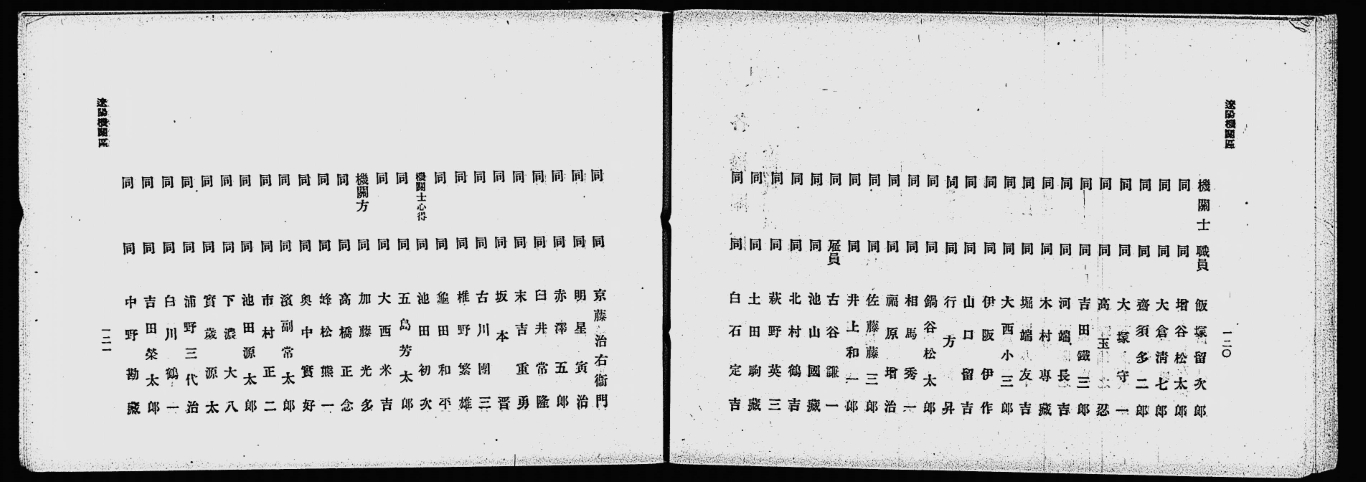 遼陽機關區
一二〇
機關士 職員 飯塚留次郎
同 同 增谷松太郎
同 同 大倉淸七郎
同 同 齋須多二郎
同 同 大塚守一
同 同 高玉忍
同 同 吉田鐵三郎
同 同 河端長吉
同 同 木村專藏
同 同 堀端友吉
同 同 大西小三郎
同 同 伊阪伊作
同 同 山口留吉
同 同 行方昇
同 同 鍋谷松太郎
同 同 相馬秀一
同 同 福原增治
同 同 佐藤藤三郎
同 同 井上和一郎
同 雇員 古谷謙一
同 同 池山國藏
同 同 北村鶴吉
同 同 萩野英三
同 同 土田駒藏
同 同 白石定吉
同 同 京藤治右衞門
同 同 明星寅治
同 同 赤澤五郎
同 同 臼井常隆
同 同 末吉重勇
同 同 坂本晋
同 同 古川團三
同 同 椎野繁雄
同 同 龜田和平
機關士心得 同 池田初次
同 同 五島芳太郎
同 同 大西米吉
機關方 同 加藤光多
同 同 高橋正念
同 同 蜂松熊一
同 同 奧中實好
同 同 濱副常太郎
同 同 市村正二
同 同 池田源太郎
同 同 下濃大八
同 同 寳歲源太
同 同 浦野三代治
同 同 白川鶴一
同 同 吉田榮太郎
同 同 中野勘藏
遼陽機關區
一二一